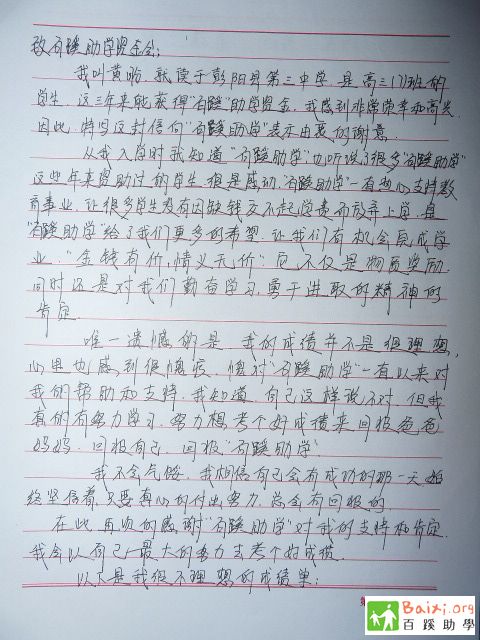 致百蹊助学资金会:
我叫黄盼,就读于彭阳县第三中学,是高三(7)班的
学生,这三年来能获得"百蹊"助学资金,我感到非常荣幸和高兴,
因此,特写这封信向"百蹊助学"表示由衷的谢意.
从我入学时我知道"百蹊助学"也听说了很多"百蹊助学"
这些年来资助过的学生,很是感动,"百蹊助学"一直热心支持教
育事业,让很多学生没有因缺钱交不起学费而放弃上学,是
"百蹊助学"给了我们更多的希望,让我们有机会完成学
业."金钱有价,情义无价"它不仅是物质奖励,
同时还是对我们勤奋学习,勇于进取的精神的
肯定.
唯一遗憾的是,我的成绩并不是很理想,
心里也感到很愧疚,愧对"百蹊助学"一直以来对
我的帮助和支持,我知道,自己这样说不对,但我
真的有努力学习,努力想考个好成绩来回报爸爸
妈妈,回报自己,回报"百蹊助学"
我不会气馁,我相信自己会有成功的那一天,始
终坚信着,只要真心的付出努力,总会有回报的.
在此,再次的感谢"百蹊助学"对我的支持和肯定.
我会以自己最大的努力去考个好成绩.
以下是我很不理想的成绩单:
Baixi.org
百蹊助學